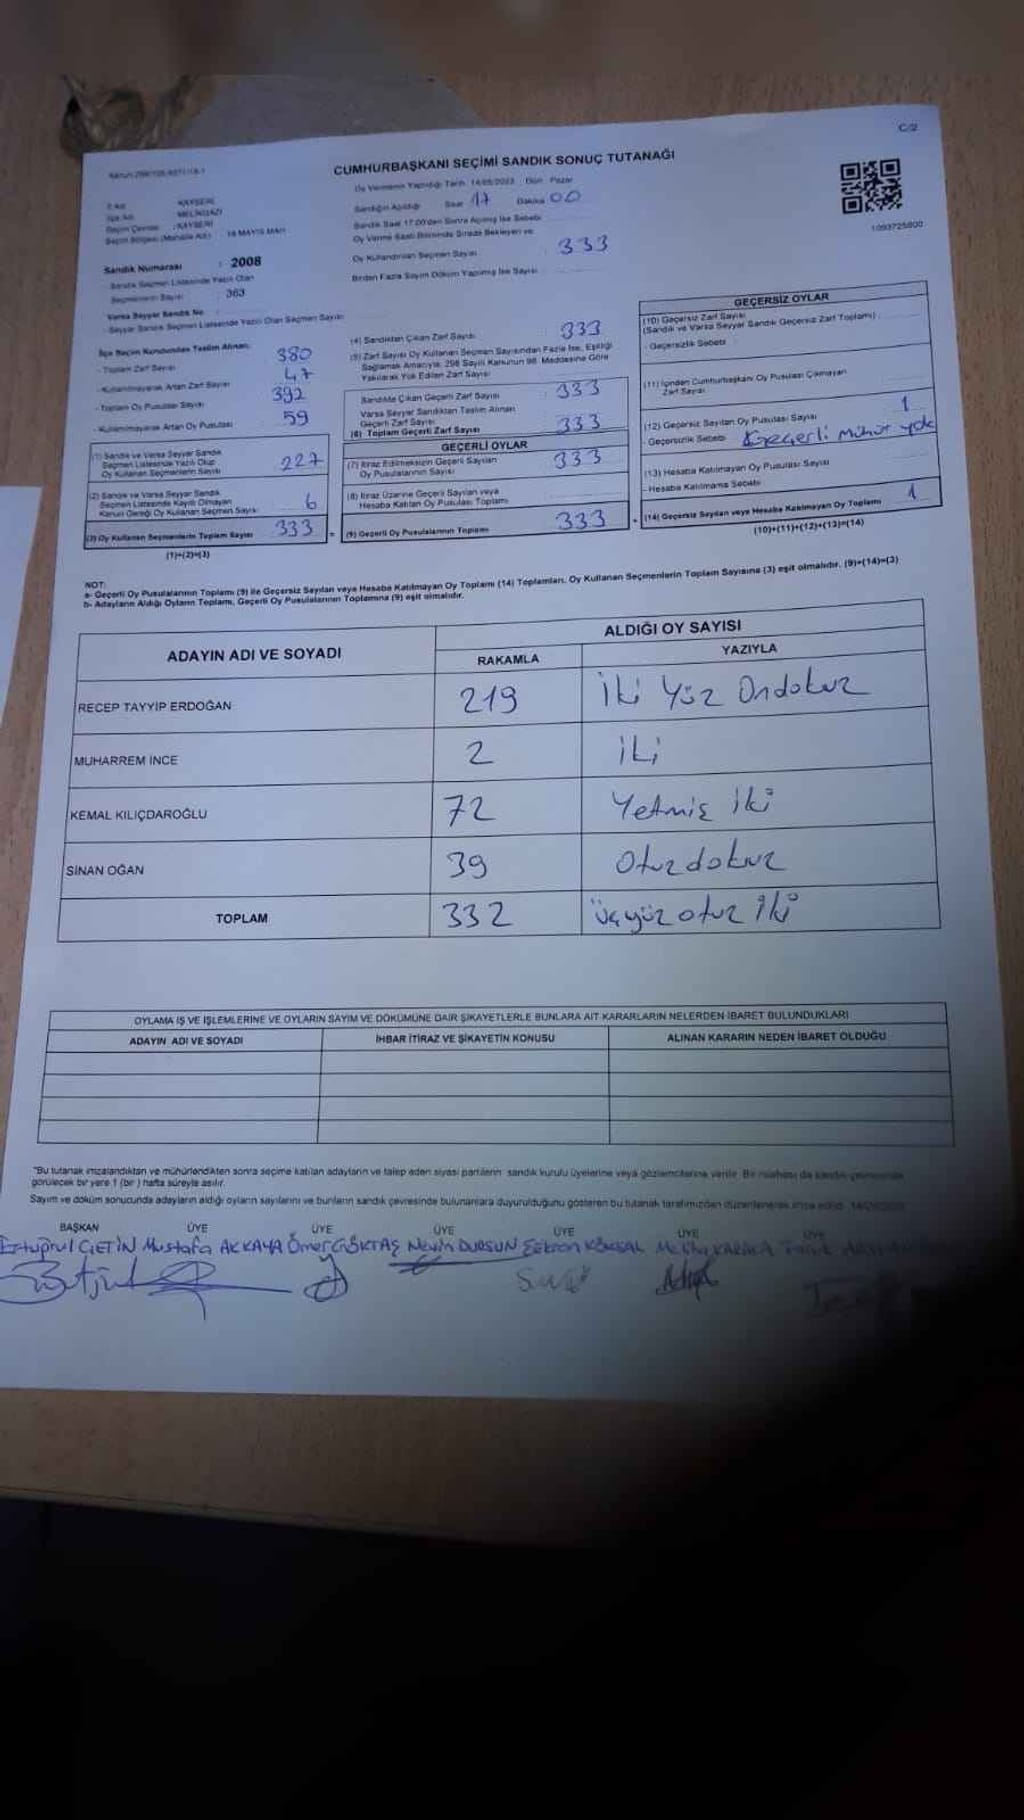 C/2
CUMHURBAŞKANI SEÇİMİ SANDIK SONUÇ TUTANAĞI
Oy Vermenin Yapıldığı Tarih 14/05/2023 Gün Pazar
Sandığın Açıldığı Saat 17 Dakika 00
Sandık Saat 17:00'den Sonra Açılmış İse Sebebi
Oy Verme Saati Bitiminde Sırada Bekleyen ve
Oy Kullandırılan Seçmen Sayısı 333
Birden Fazla Sayım Döküm Yapılmış İse Sayısı
1093725800
İl Adı KAYSERİ
İlçe Adı MELİKGAZİ
Seçim Çevresi : KAYSERİ
Seçim Bölgesi (Mahalle Adı) 19 MAYIS MAH.
Sandık Numarası : 2008
Sandık Seçmen Listesinde Yazılı Olan
Seçmenlerin Sayısı : 363
Varsa Seyyar Sandık No
Seyyar Sandık Seçmen Listesinde Yazılı Olan Seçmen Sayısı
İlçe Seçim Kurulundan Teslim Alınan;
- Toplam Zarf Sayısı 380
- Kullanılmayarak Artan Zarf Sayısı 47
- Toplam Oy Pusulası Sayısı 392
- Kullanılmayarak Artan Oy Pusulası 59
(1) Sandık ve Varsa Seyyar Sandık
Seçmen Listesinde Yazılı Olup
Oy Kullanan Seçmenlerin Sayısı 227
(2) Sandık ve Varsa Seyyar Sandık
Seçmen Listesinde Kayıtlı Olmayan
Kanun Gereği Oy Kullanan Seçmen Sayısı 6
(3) Oy Kullanan Seçmenlerin Toplam Sayısı 333
(1)+(2)=(3)
(4) Sandıktan Çıkan Zarf Sayısı 333
(5) Zarf Sayısı Oy Kullanan Seçmen Sayısından Fazla İse, Eşitliği
Sağlamak Amacıyla, 298 Sayılı Kanunun 98. Maddesine Göre
Yakılarak Yok Edilen Zarf Sayısı
Sandıkta Çıkan Geçerli Zarf Sayısı 333
Varsa Seyyar Sandıktan Teslim Alınan
Geçerli Zarf Sayısı
(6) Toplam Geçerli Zarf Sayısı 333
GEÇERLİ OYLAR
(7) İtiraz Edilmeksizin Geçerli Sayılan
Oy Pusulalarının Sayısı 333
(8) İtiraz Üzerine Geçerli Sayılan veya
Hesaba Katılan Oy Pusulası Toplamı
(9) Geçerli Oy Pusulalarının Toplamı 333
GEÇERSİZ OYLAR
(10) Geçersiz Zarf Sayısı
(Sandık ve Varsa Seyyar Sandık Geçersiz Zarf Toplamı)
- Geçersizlik Sebebi
(11) İçinden Cumhurbaşkanı Oy Pusulası Çıkmayan
Zarf Sayısı
(12) Geçersiz Sayılan Oy Pusulası Sayısı 1
- Geçersizlik Sebebi Geçerli mühür yok
(13) Hesaba Katılmayan Oy Pusulası Sayısı
- Hesaba Katılmama Sebebi
(14) Geçersiz Sayılan veya Hesaba Katılmayan Oy Toplamı 1
(10)+(11)+(12)+(13)=(14)
NOT:
a- Geçerli Oy Pusulalarının Toplamı (9) ile Geçersiz Sayılan veya Hesaba Katılmayan Oy Toplamı (14) Toplamları, Oy Kullanan Seçmenlerin Toplam Sayısına (3) eşit olmalıdır. (9)+(14)=(3)
b- Adayların Aldığı Oyların Toplamı, Geçerli Oy Pusulalarının Toplamına (9) eşit olmalıdır.
ADAYIN ADI VE SOYADI
ALDIĞI OY SAYISI
RAKAMLA YAZIYLA
RECEP TAYYİP ERDOĞAN 219 İki Yüz Ondokuz
MUHARREM İNCE 2 İki
KEMAL KILIÇDAROĞLU 72 Yetmiş iki
SİNAN OĞAN 39 Otuzdokuz
TOPLAM 332 Üçyüz otuz iki
OYLAMA İŞ VE İŞLEMLERİNE VE OYLARIN SAYIM VE DÖKÜMÜNE DAİR ŞİKAYETLERLE BUNLARA AİT KARARLARIN NELERDEN İBARET BULUNDUKLARI
ADAYIN ADI VE SOYADI İHBAR İTİRAZ VE ŞİKAYETİN KONUSU ALINAN KARARIN NEDEN İBARET OLDUĞU
"Bu tutanak imzalandıktan ve mühürlendikten sonra seçime katılan adayların ve talep eden siyasi partilerin sandık kurulu üyelerine veya gözlemcilerine verilir. Bir nüshası da sandık çevresinde
görülecek bir yere 1 (bir) hafta süreyle asılır.
Sayım ve döküm sonucunda adayların aldığı oyların sayılarını ve bunların sandık çevresinde bulunanlara duyurulduğunu gösteren bu tutanak tarafımızdan düzenlenerek imza edildi. 14/05/2023
BAŞKAN ÜYE ÜYE ÜYE ÜYE ÜYE ÜYE
Ertuğrul ÇETİN Mustafa AKKAYA Ömer GÖKTAŞ Nevin DURSUN KÖKSAL KARACA